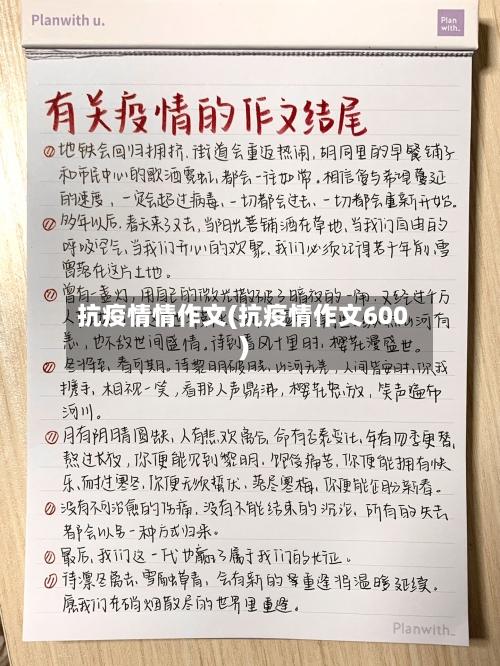 Planwith u.
Plan with_
有关疫情的作文结尾
① 地铁会回归拥挤，街道会重返热闹，胡同里的早餐铺子
和市民中心的歌洒霓虹，都会一往如常。相信爱与希望蔓延
的速度，一定会超过病毒，一切都会过去，一切都会重新开始。
多年以后，春天来了又去，当阳光普铺洒在草地，当我们自由的
呼吸空气，当我们开心的欢聚，我们必须记得若干年前小雪
曾落在这片土地。
曾有一盏灯，用自己的微光撕破了暗寂的一隅，又经过千万人
抗疫情情作文(抗疫情作文600
)
山河有
恙，也不敌世间盛情。待到春风十里时，樱花漫盛世。
尽，看可期。待黎明破晓，山河无恙，人间皆安时，你我
携手，相视一笑，看那人声鼎沸，樱花怒放，笑声遍布
河川。
月有阴晴圆缺，人有悲欢离合，命有否泰变化，年有四季更替，
熬过长夜，你便能见到黎明，饱受痛苦，你便能拥有快
乐，耐过寒冬，你便无须蛰伏，落尽寒梅，你便能企盼新春。
没有不可治愈的伤痛，没有不能结束的沉沦，所有的失去
都会以另一种方式归来。
最后，我们这一代也赢了属于我们的长征。
待凛冬离去，雪融草青，会有新的 重逢将温暖延续。
愿我们在硝烟散尽的世界里重逢。
Planwith_